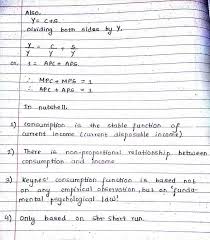 Also,
Y = C+S.
Dividing both sides by Y,
Y/Y = C/Y + S/Y
or, 1 = APC + APS.
∴ MPC + MPS = 1
∴ APC + APS = 1
In nutshell,
1) Consumption is the stable function of
current income (current disposable income)
2) There is non-proportional relationship between
consumption and income
3) Keynes' consumption function is based not
on any empirical observation, but on 'funda-
mental psychological law'
4) Only based on short run.